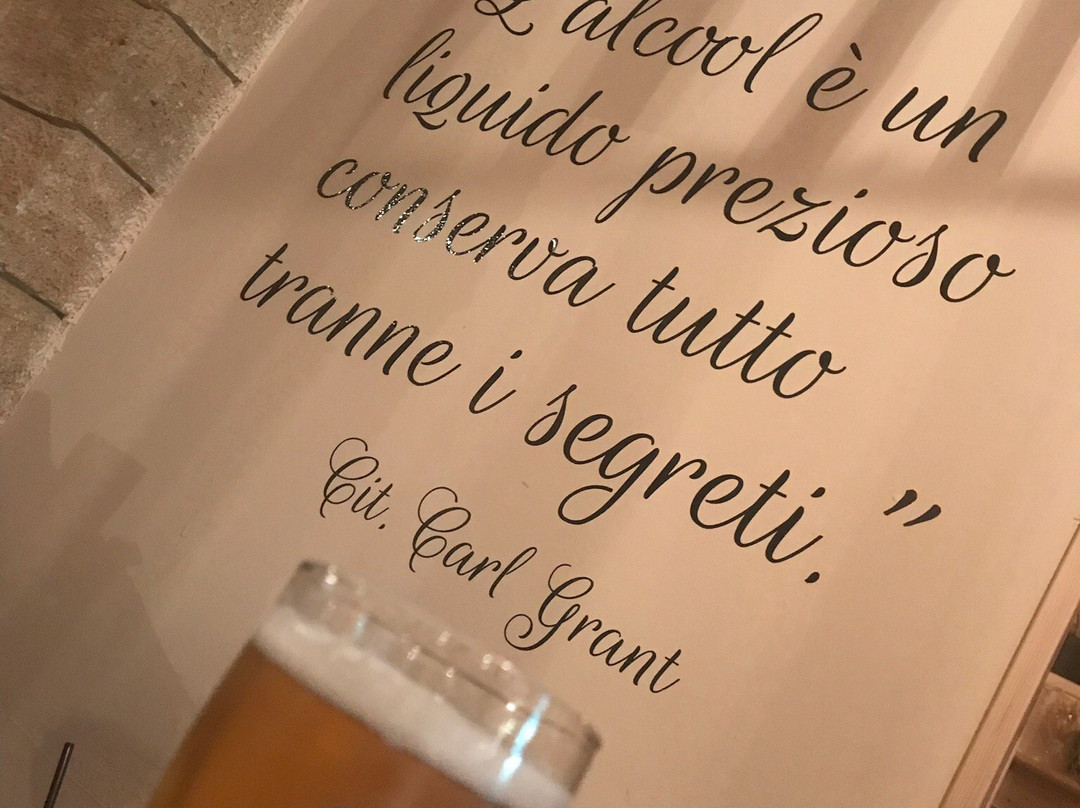 L'alcool è un
liquido prezioso
conserva tutto
tranne i segreti.”
Cit. Carl Grant